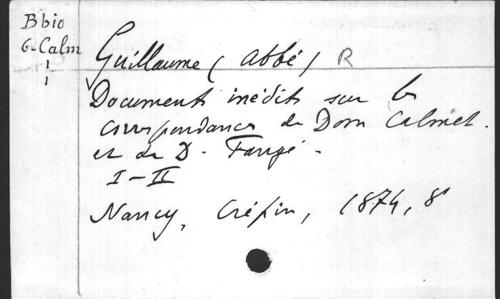 B bio
G-Calm
Guillaume (abbé) R
Documents inédits sur les
correspondances de Dom Calmet
et de D. Fangé.
I-II
Nancy, Crépin, 1874, 8°